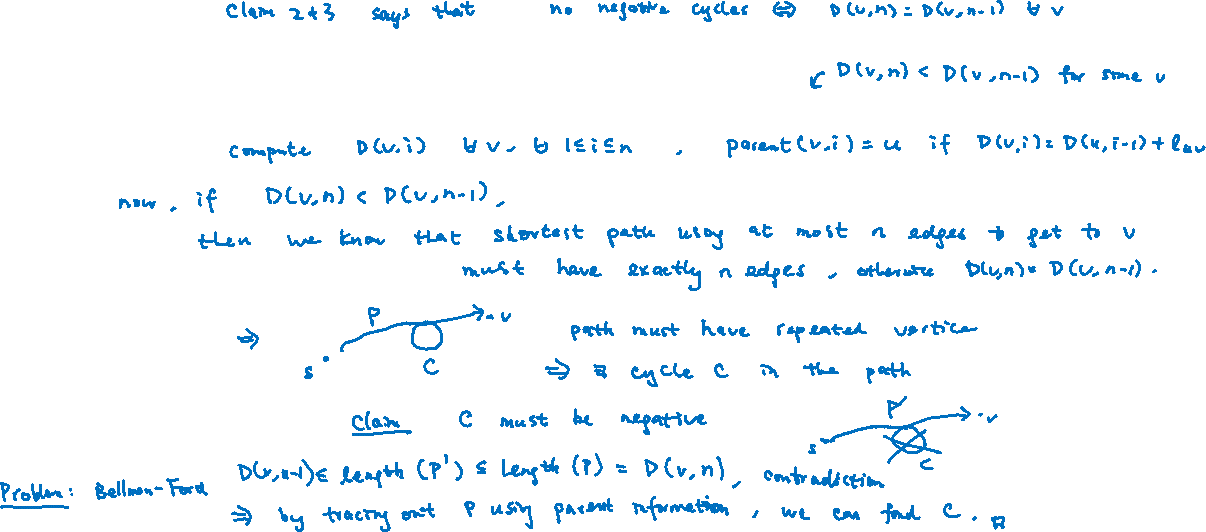 Claim 2+3 says that no negative cycles ⇔ D(v,n) = D(v,n-1) ∀ v
↙ D(v,n) < D(v,n-1) for some v
compute D(v,i) ∀ v, ∀ 1≤i≤n , parent(v,i) = u if D(v,i) = D(u,i-1) + l_uv
now, if D(v,n) < D(v,n-1),
then we know that shortest path using at most n edges to get to v
must have exactly n edges, otherwise D(v,n) = D(v,n-1).
⇒ s P C v path must have repeated vertice
⇒ ∃ cycle C in the path
Claim C must be negative s P' C v
D(v,n-1) ≤ length (P') ≤ length (P) = D(v,n), contradiction
Problem: Bellman-Ford
⇒ by tracing out P using parent information, we can find C.